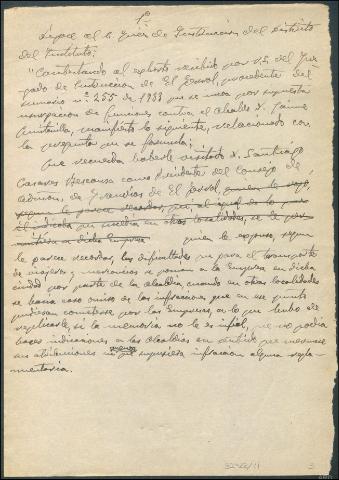 1º
al Sr. Juez de Instrucción del distrito
del Instituto:
Contestando al exhorto recibido por V.S. del Juz-
gado de Instrucción de El Ferrol, procedente del
sumario nº 255 de 1933 que se incoa por supuesta
usurpación de funciones contra el alcalde D. Jaime
Quintanilla, manifiesto lo siguiente, relacionado con
la pregunta que se formula:
Que recuerda haberle visitado D. Santiago
Casares como Presidente del Consejo de
Admon. de de El Ferrol, quien le
según le parece recordar, al igual de lo que
en otras localidades, se
dicha Empresa quien le expuso, según
le parece recordar, las dificultades que para el transporte
de viajeros y mercancías se ponían a la Empresa en dicha
ciudad por parte de la alcaldía, cuando en otras localidades
se hacía caso omiso de las infracciones que en ese punto
pudieran cometerse por las Empresas, a lo que hubo de
replicarle, si la memoria no le es infiel, que no podía
hacer indicaciones a las alcaldías en sentido que mermase
sus atribuciones que supusiera infracción alguna regla-
mentaria.
3